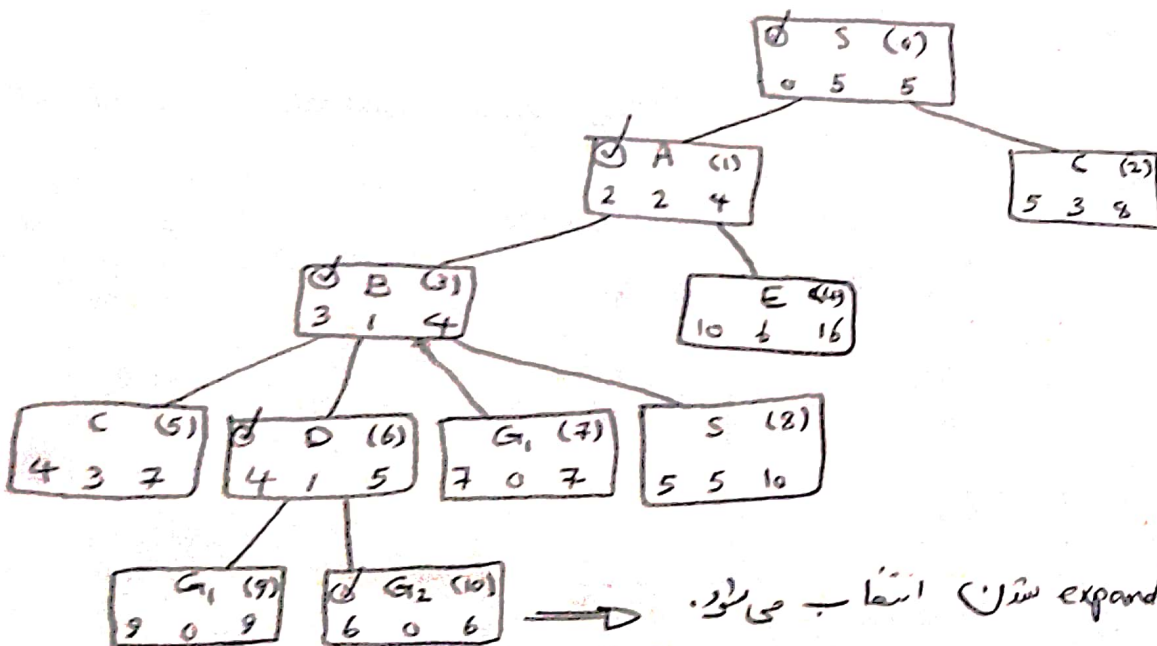 S (0)
0 5 5
A (1)
2 2 4
C (2)
5 3 8
B (3)
3 1 4
E (4)
10 6 16
C (5)
4 3 7
D (6)
4 1 5
G1 (7)
7 0 7
S (8)
5 5 10
G1 (9)
9 0 9
G2 (10)
6 0 6
expand شدن انتخاب می‌شود.